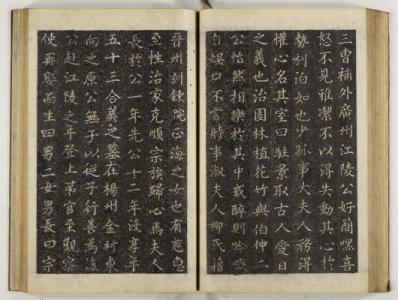 三曹補外廣州江陵公好簡嘿喜
怒不見雅潔不以得失動其心於
勢利泊如也少孤事大夫人務得
懽心名其堂曰駐景取古人愛日
之義也治園林植花竹與伯仲二
公怡然相樂於其中或醉則吟哦
自娛口不言時事淑夫人柳氏籍
晉州判錄院正海之女也有懿惪
至性治家克順宗族歸心焉夫人
長於公一年先公十二年歿享年
五十三合葬之墓在楊州金村東
向之原公無子以從子行善為後
公赴江陵之年登上第官至觀察
使再娶而生四男二女男長曰宗